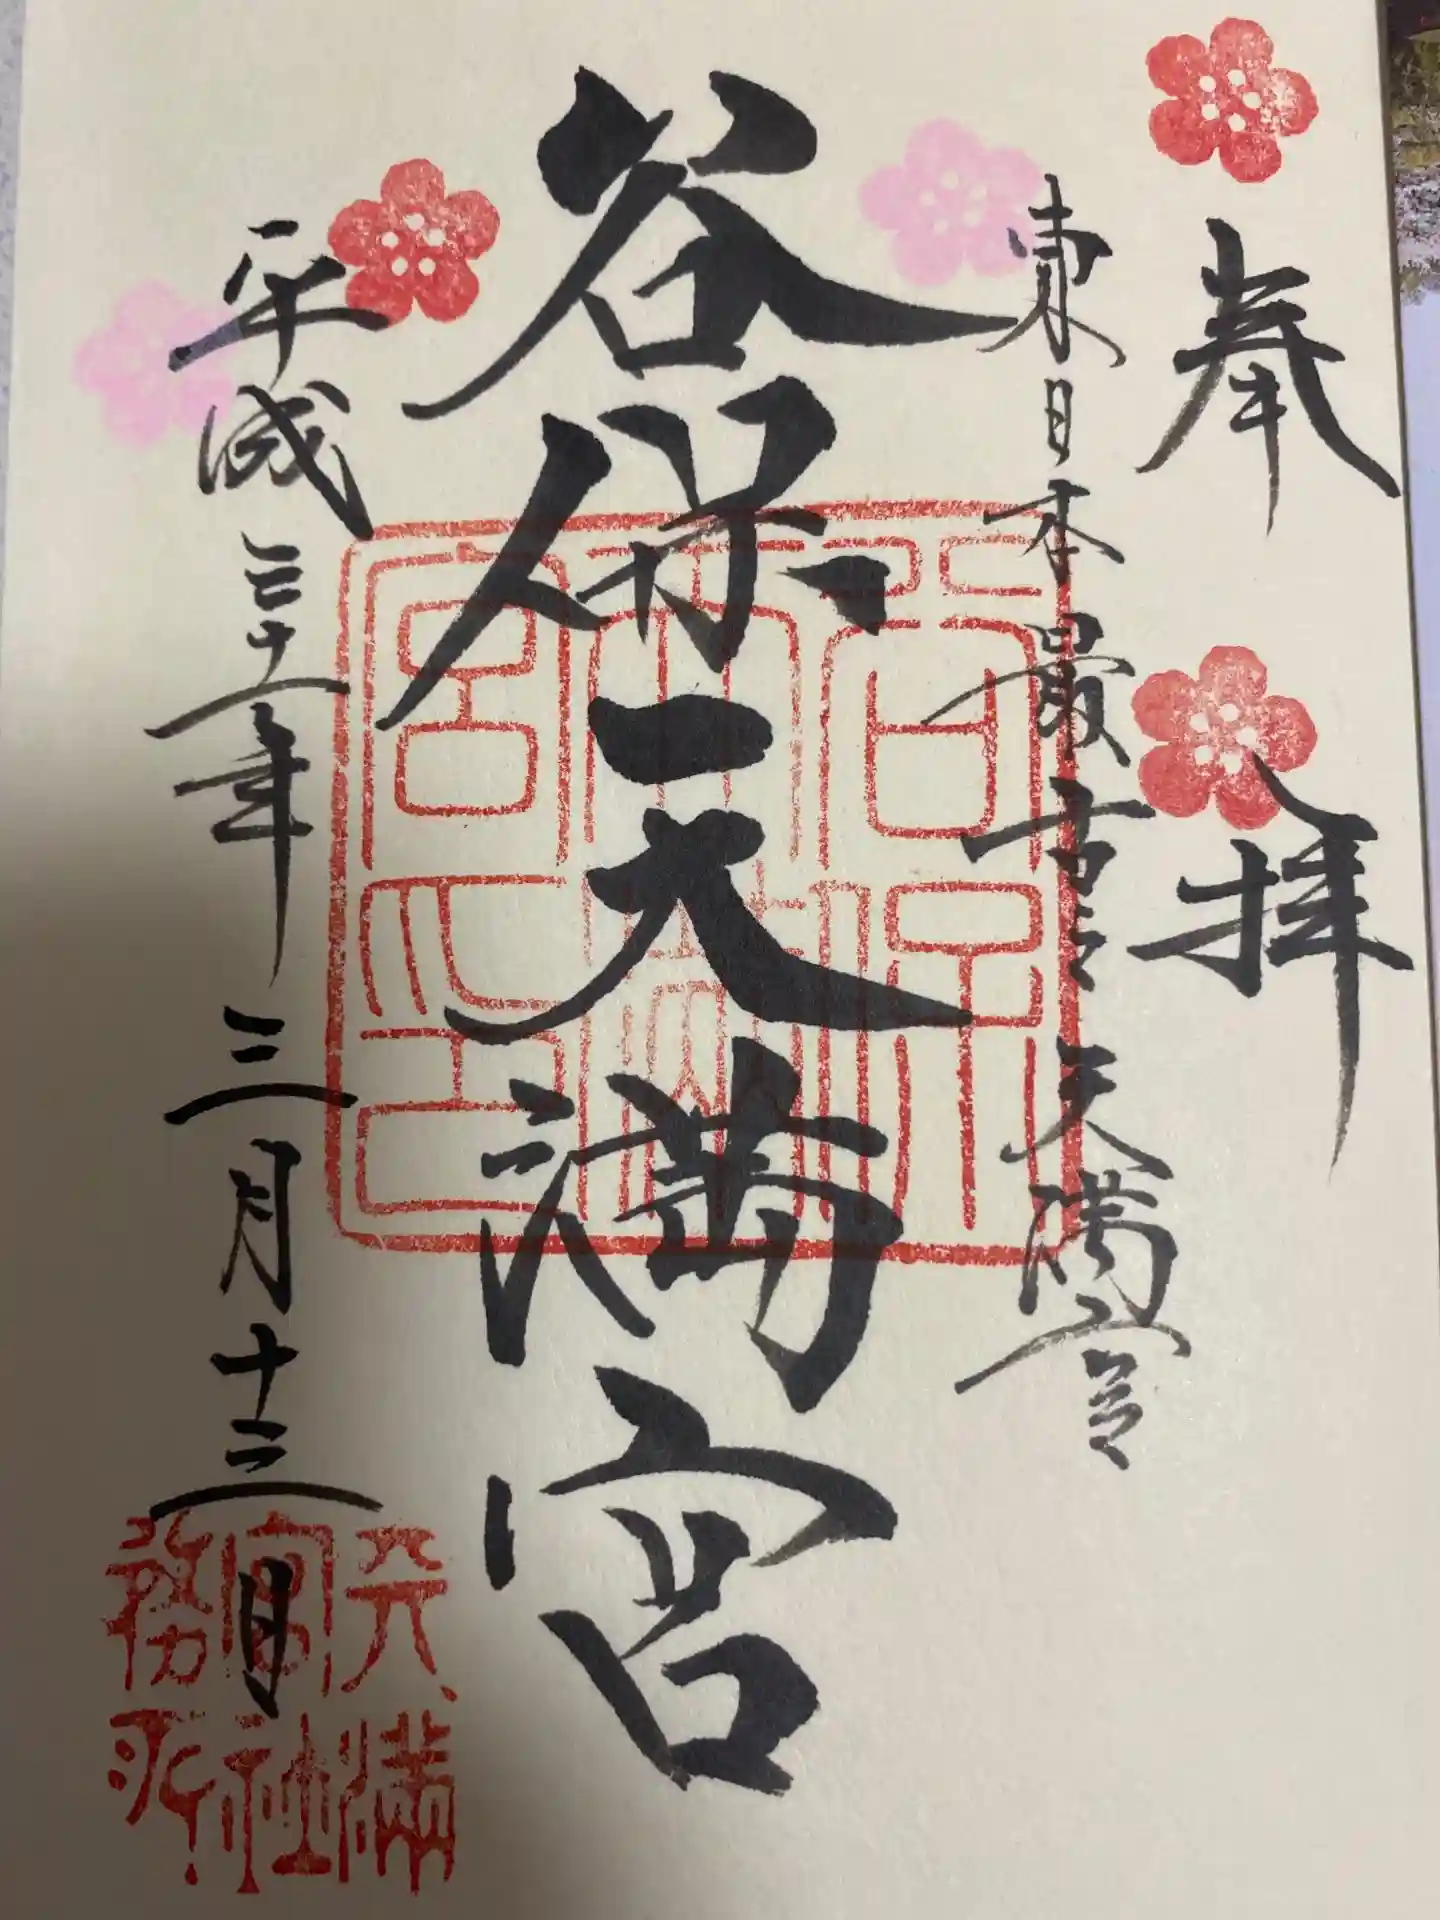 奉拝
東日本最古之天満宮
谷保天満宮
平成三十一年三月十三日
天満
宮社
務所